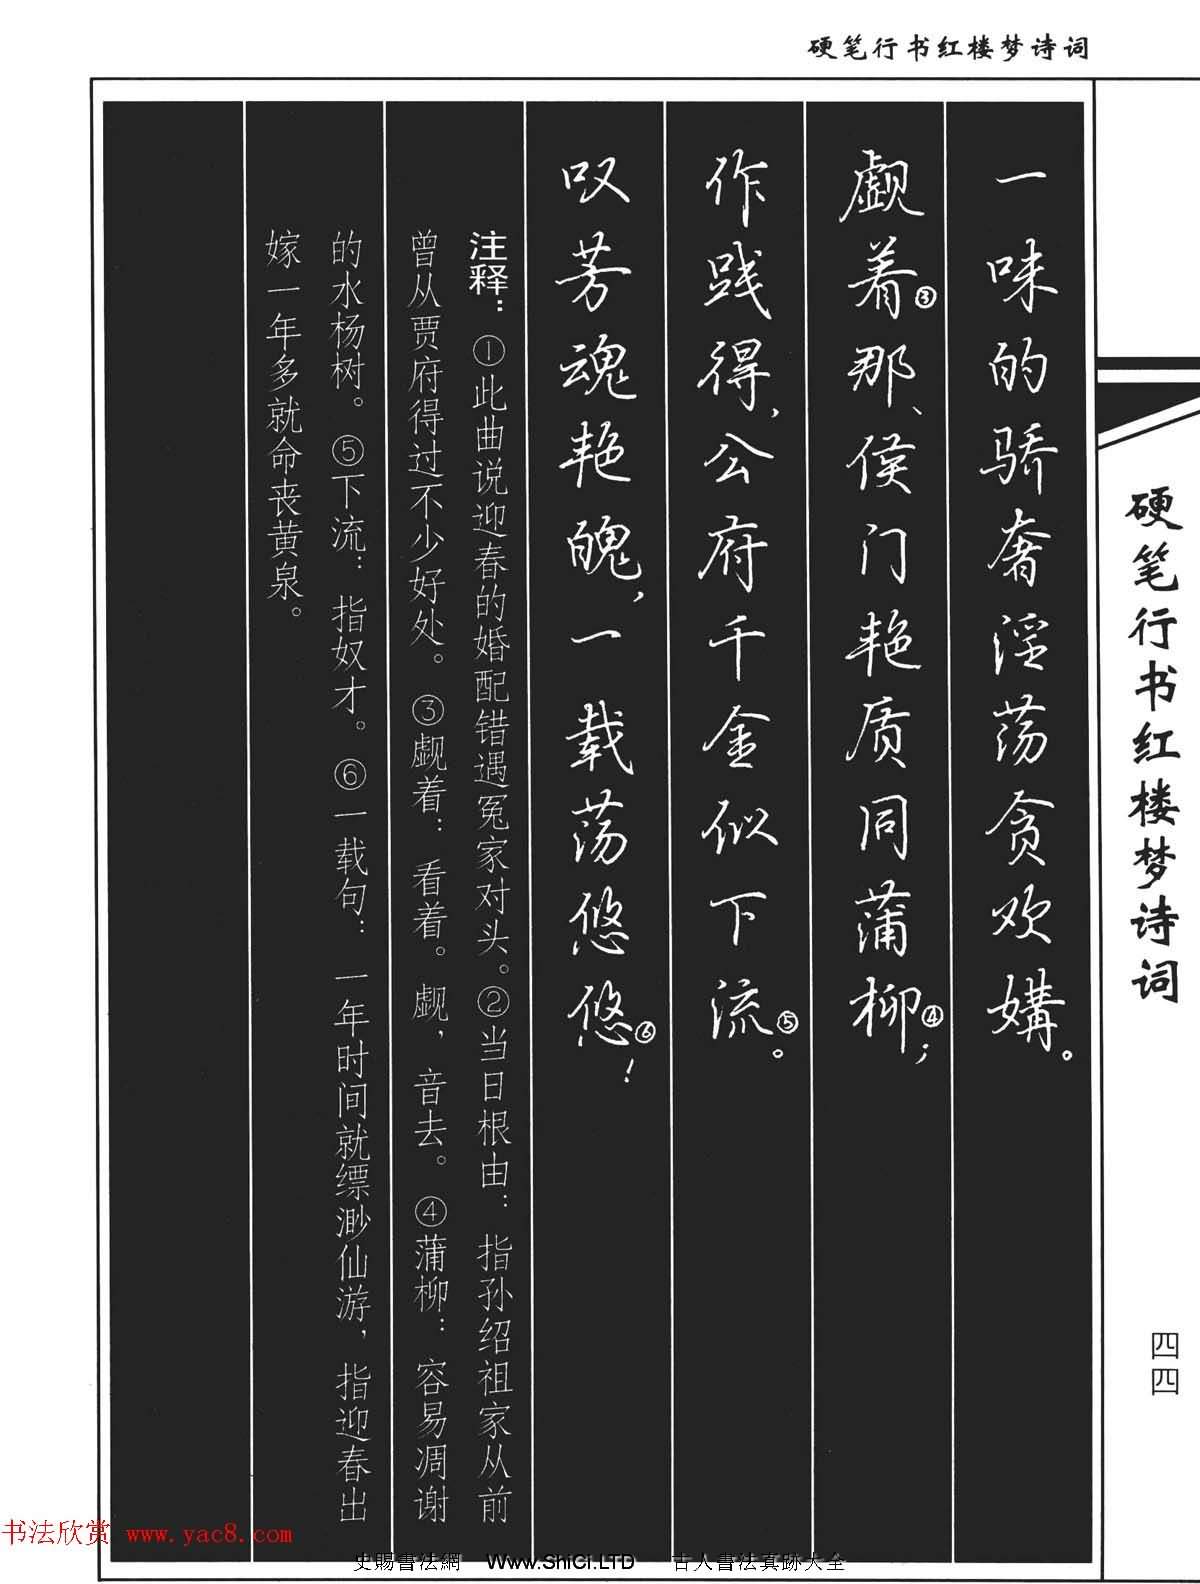 硬笔行书红楼梦诗词
一味的骄奢淫荡贪欢媾。
觑着③那、侯门艳质同蒲柳④；
作践得，公府千金似下流⑤。
叹芳魂艳魄，一载荡悠悠⑥！
注释：①此曲说迎春的婚配错遇冤家对头。②当日根由：指孙绍祖家从前
曾从贾府得过不少好处。③觑着：看着。觑，音去。④蒲柳：容易凋谢
的水杨树。⑤下流：指奴才。⑥一载句：一年时间就缥渺仙游，指迎春出
嫁一年多就命丧黄泉。
硬笔行书红楼梦诗词
四四
书法欣赏 www.yac8.com
史賜書法網 Www.ShiCi.LTD 古人書法真跡大全